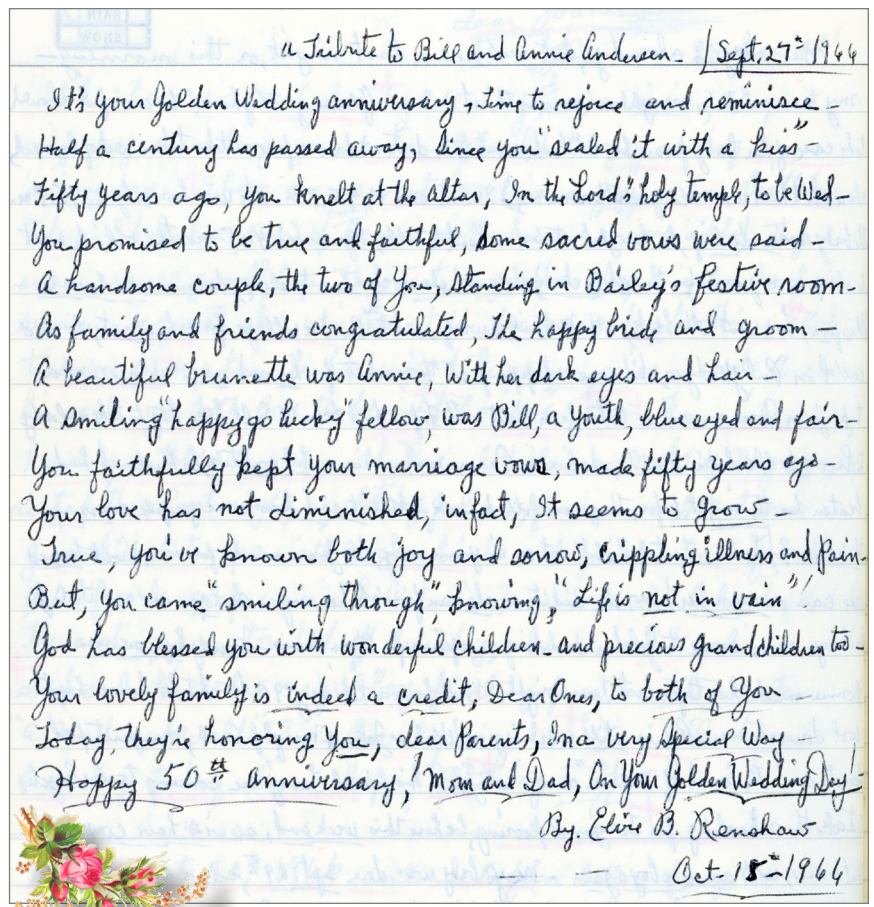 a Tribute to Bill and Annie Andersen - Sept. 27th 1964
It's your Golden Wedding anniversary, time to rejoice and reminisce -
Half a century has passed away, since you "sealed it with a kiss" -
Fifty years ago, you knelt at the altar, In the Lord's holy temple, to be Wed -
You promised to be true and faithful, some sacred vows were said -
A handsome couple, the two of You, standing in Bailey's festive room -
As family and friends congratulated, The happy bride and groom -
A beautiful brunette was Annie, With her dark eyes and hair -
A smiling "happy go lucky" fellow, was Bill, a youth, blue eyed and fair -
You faithfully kept your marriage vows, made fifty years ago -
Your love has not diminished, infact, It seems to grow -
True, you've known both joy and sorrow, crippling illness and Pain -
But, you came "smiling through", knowing, "Life is not in vain"!
God has blessed you with wonderful children - and precious grandchildren too -
Your lovely family is indeed a credit, Dear Ones, to both of You
Today they're honoring You, dear Parents, In a very Special Way
Happy 50th anniversary! Mom and Dad, On Your Golden Wedding Day!
By. Elvie B. Renshaw
Oct - 15th - 1964